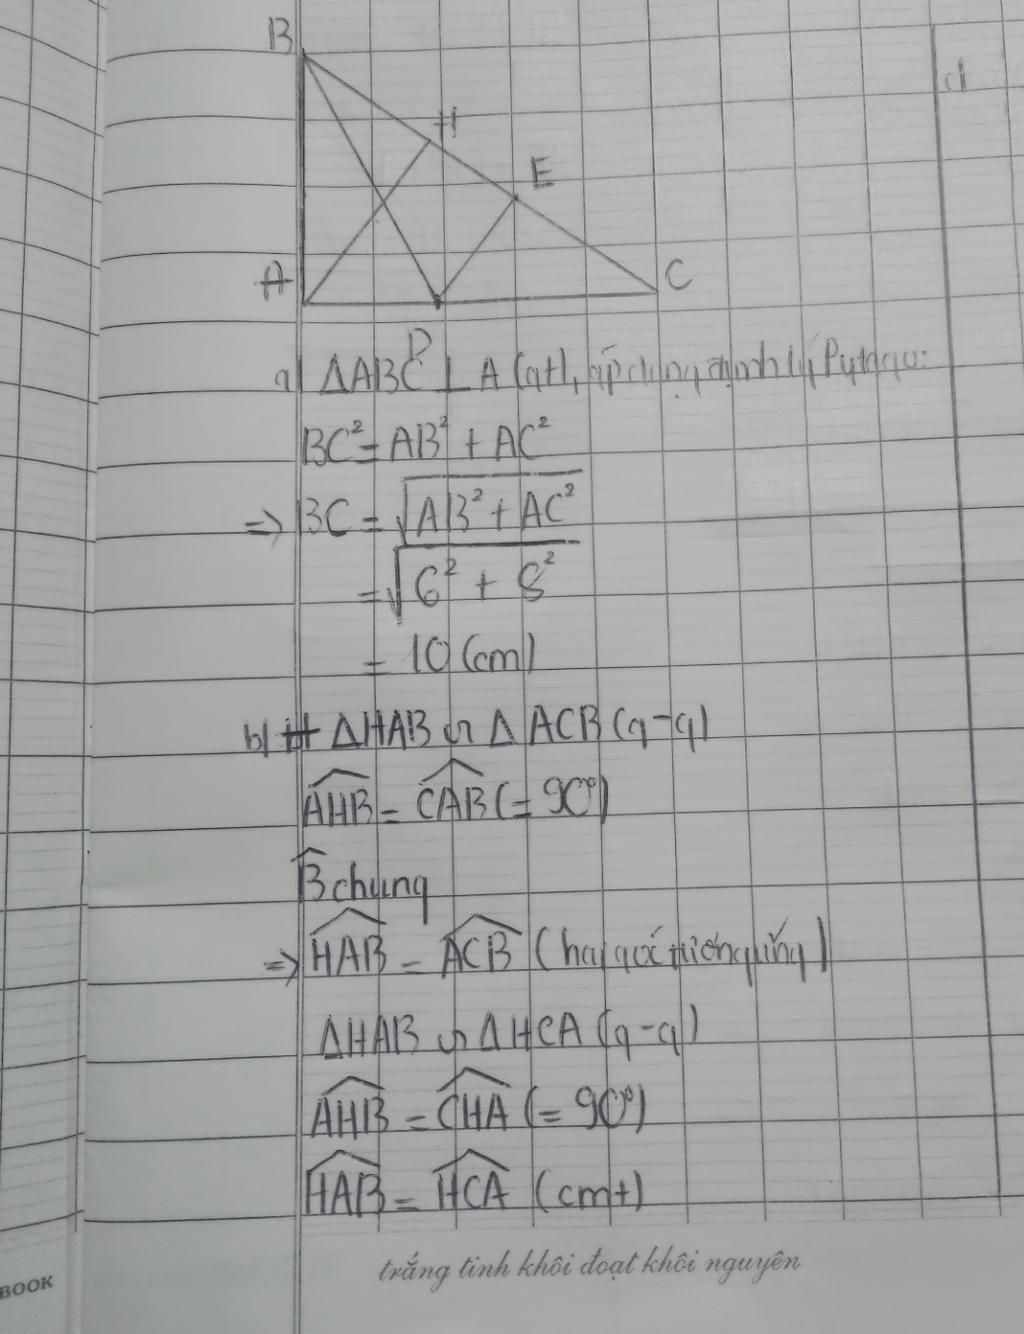 B
H
E
A
C
D
d
a) ΔABC ⊥ A (gt), áp dụng định lý Pytago:
BC² = AB² + AC²
=> BC = √AB² + AC²
= √6² + 8²
= 10 (cm)
b) ΔHAB ∽ ΔACB (g-g)
AHB = CAB (= 90°)
B chung
=> HAB = ACB (hai góc tương ứng)
ΔHAB ∽ ΔHCA (g-g)
AHB = CHA (= 90°)
HAB = HCA (cmt)
trắng tinh khôi đoạt khôi nguyên
BOOK